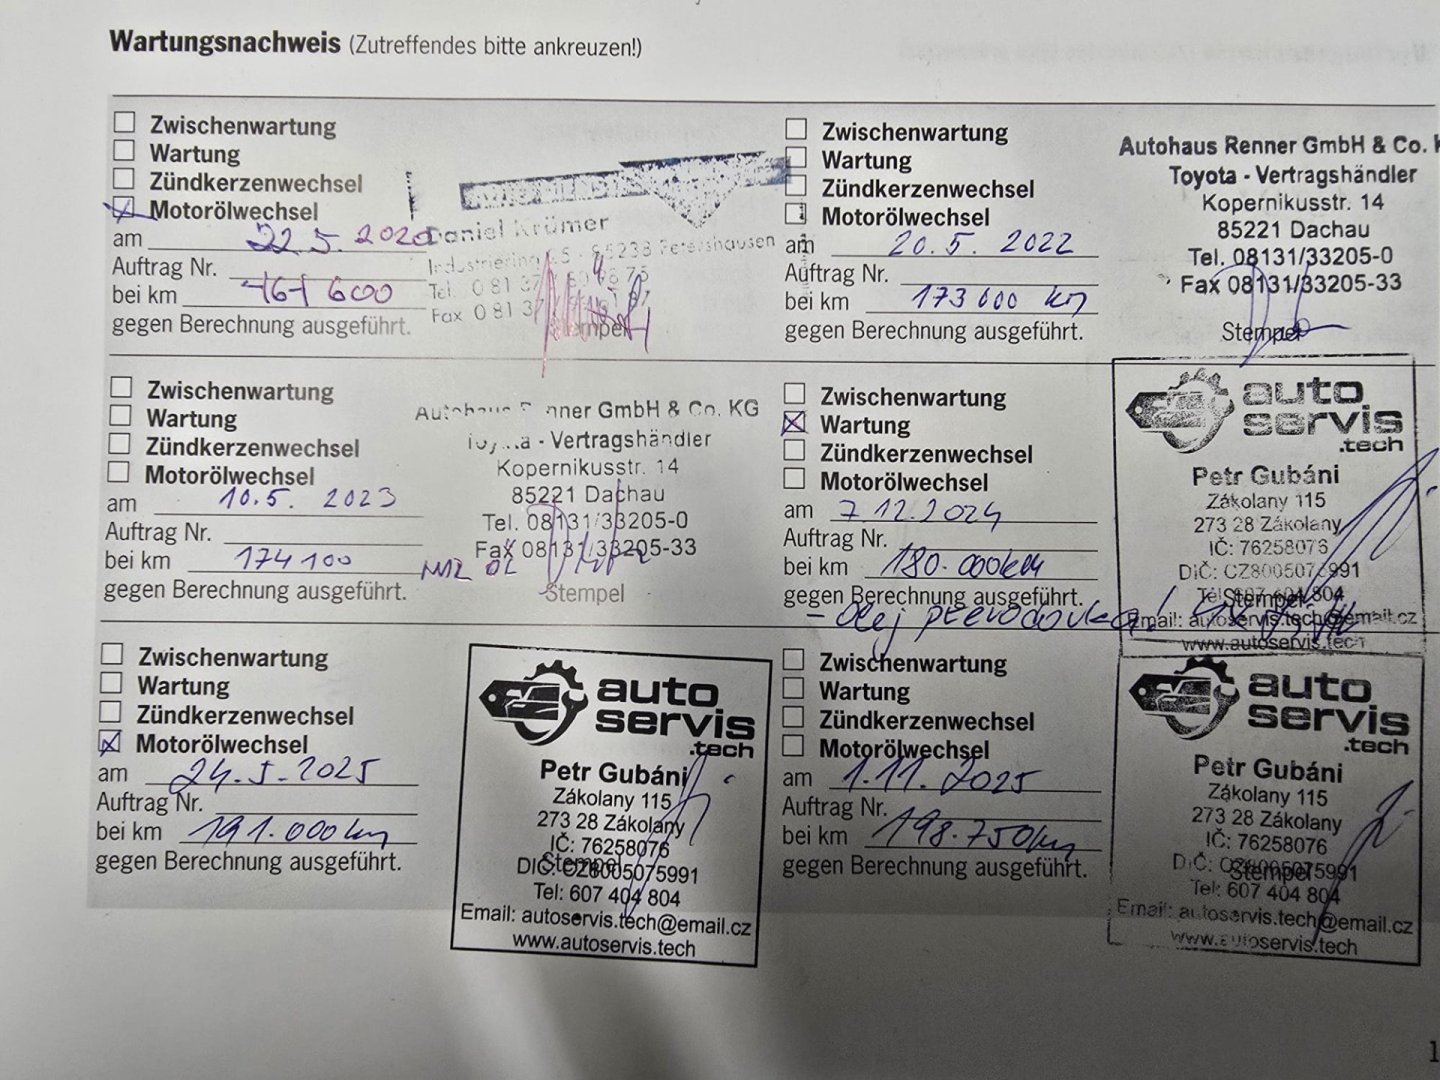 Wartungsnachweis (Zutreffendes bitte ankreuzen!)
Zwischenwartung
Wartung
Zündkerzenwechsel
Motorölwechsel
am 22.5.2020
Auftrag Nr.
bei km 161 600
gegen Berechnung ausgeführt.
Daniel Krümer
Industriering 5 · 85238 Petershausen
Tel. 0 81 37
Fax 0 81 37
Stempel
Zwischenwartung
Wartung
Zündkerzenwechsel
Motorölwechsel
am 20.5.2022
Auftrag Nr.
bei km 173 000 km
gegen Berechnung ausgeführt.
Autohaus Renner GmbH & Co.
Toyota - Vertragshändler
Kopernikusstr. 14
85221 Dachau
Tel. 08131/33205-0
Fax 08131/33205-33
Stempel
Zwischenwartung
Wartung
Zündkerzenwechsel
Motorölwechsel
am 10.5.2023
Auftrag Nr.
bei km 174 100
gegen Berechnung ausgeführt.
Autohaus Renner GmbH & Co. KG
Toyota - Vertragshändler
Kopernikusstr. 14
85221 Dachau
Tel. 08131/33205-0
Fax 08131/33205-33
Stempel
Zwischenwartung
Wartung
Zündkerzenwechsel
Motorölwechsel
am 7.12.2024
Auftrag Nr.
bei km 180.000km
gegen Berechnung ausgeführt.
- olej převodovka
auto
servis
.tech
Petr Gubáni
Zákolany 115
273 28 Zákolany
IČ: 76258076
DIČ: CZ8005075991
Tel: 607 404 804
Stempel
Email: autoservis.tech@email.cz
www.autoservis.tech
Zwischenwartung
Wartung
Zündkerzenwechsel
Motorölwechsel
am 24.5.2025
Auftrag Nr.
bei km 191.000km
gegen Berechnung ausgeführt.
auto
servis
.tech
Petr Gubáni
Zákolany 115
273 28 Zákolany
IČ: 76258076
Stempel
DIČ: CZ8005075991
Tel: 607 404 804
Email: autoservis.tech@email.cz
www.autoservis.tech
Zwischenwartung
Wartung
Zündkerzenwechsel
Motorölwechsel
am 1.11.2025
Auftrag Nr.
bei km 198.750km
gegen Berechnung ausgeführt.
auto
servis
.tech
Petr Gubáni
Zákolany 115
273 28 Zákolany
IČ: 76258076
DIČ: CZ8005075991
Stempel
Tel: 607 404 804
Email: autoservis.tech@email.cz
www.autoservis.tech
1